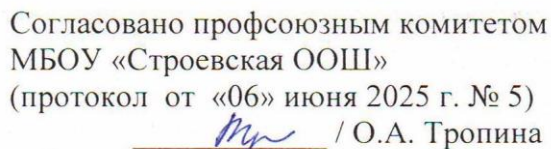 Согласовано профсоюзным комитетом
МБОУ «Строевская ООШ»
(протокол от «06» июня 2025 г. № 5)
/ О.А. Тропина